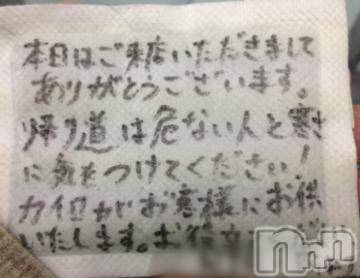 本日はご来店いただきまして
ありがとうございます。
帰り道は危ない人と寒さ
に気をつけてください!
カイロがお客様にお供
いたします。お